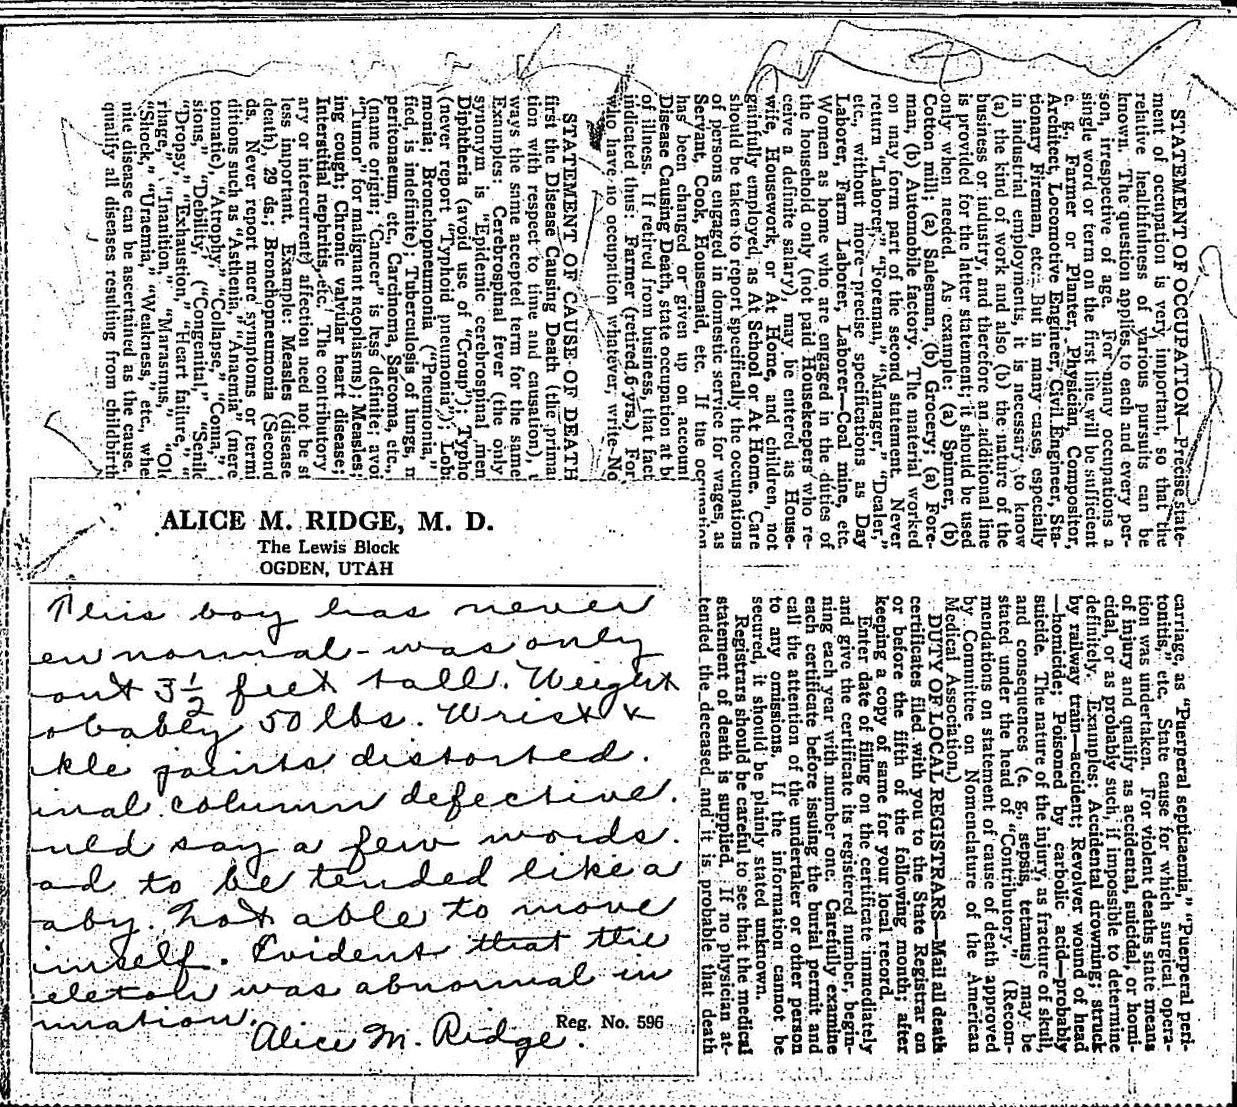 STATEMENT OF OCCUPATION—Precise state-
ment of occupation is very important, so that the
relative healthfulness of various pursuits can be
known. The question applies to each and every per-
son, irrespective of age. For many occupations a
single word or term on the first line will be sufficient
e. g., Farmer or Planter, Physician, Compositor,
Architect, Locomotive Engineer, Civil Engineer, Sta-
tionary Fireman, etc. But in many cases, especially
in industrial employments, it is necessary to know
(a) the kind of work and also (b) the nature of the
business or industry, and therefore an additional line
is provided for the latter statement; it should be used
only when needed. As example: (a) Spinner, (b)
Cotton mill; (a) Salesman, (b) Grocery; (a) Fore-
man, (b) Automobile factory. The material worked
on may form part of the second statement. Never
return "Laborer," "Foreman," "Manager," "Dealer,"
etc., without more precise specifications as Day
Laborer, Farm Laborer, Laborer—Coal mine, etc.
Women as home who are engaged in the duties of
the household only (not paid Housekeepers who re-
ceive a definite salary), may be entered as House-
wife, Housework, or At Home, and children, not
gainfully employed, as At School or At Home. Care
should be taken to report specifically the occupations
of persons engaged in domestic service for wages, as
Servant, Cook, Housemaid, etc. If the occupation
has been changed or given up on account
Disease Causing Death, state occupation at b
of illness. If retired from business, that fact
indicated thus: Farmer (retired, 6 yrs.) For
who have no occupation whatever, write No
STATEMENT OF CAUSE OF DEATH
first the Disease Causing Death (the prima
tion with respect to time and causation),
ways the same accepted term for the same
Examples: Cerebrospinal fever (the only
synonym is "Epidemic cerebrospinal men
Diphtheria (avoid use of "Croup"); Typho
(never report "Typhoid pneumonia"); Loba
monia; Bronchopneumonia ("Pneumonia,"
fied, is indefinite); Tuberculosis of lungs, m
peritonaeum, etc., Carcinoma, Sarcoma, etc.,
(name origin; "Cancer" is less definite; avoi
"Tumor" for malignant neoplasms); Measles;
ing cough; Chronic valvular heart disease;
Interstitial nephritis, etc. The contributory
ary or intercurrent) affection need not be st
less important. Example: Measles (disease
death), 29 ds.; Bronchopneumonia (Second
ds. Never report mere symptoms or termi
ditions such as "Asthenia," "Anaemia" (mere
tomatic), "Atrophy," "Collapse," "Coma,"
sions," "Debility," ("Congenital," "Senile
"Dropsy," "Exhaustion," "Heart failure,"
rhage," "Inanition," "Marasmus," "Ol
"Shock," "Uraemia," "Weakness," etc., whe
nite disease can be ascertained as the cause.
qualify all diseases resulting from childbirth
carriage, as "Puerperal septicaemia," "Puerperal peri-
tonitis," etc. State cause for which surgical opera-
tion was undertaken. For violent deaths state means
of injury and qualify as accidental, suicidal, or homi-
cidal, or as probably such, if impossible to determine
definitely. Examples: Accidental drowning; struck
by railway train—accident; Revolver wound of head
—homicide; Poisoned by carbolic acid—probably
suicide. The nature of the injury, as fracture of skull,
and consequences (e. g., sepsis, tetanus) may be
stated under the head of "Contributory." (Recom-
mendations on statement of cause of death approved
by Committee on Nomenclature of the American
Medical Association.)
DUTY OF LOCAL REGISTRARS—Mail all death
certificates filed with you to the State Registrar on
or before the fifth of the following month; after
keeping a copy of same for your local record.
Enter date of filing on the certificate immediately
and give the certificate its registered number, begin-
ning each year with number one. Carefully examine
each certificate before issuing the burial permit and
call the attention of the undertaker or other person
to any omissions. If the information cannot be
secured, it should be plainly stated unknown.
Registrars should be careful to see that the medical
statement of death is supplied. If no physician at-
tended the deceased and it is probable that death
ALICE M. RIDGE, M. D.
The Lewis Block
OGDEN, UTAH
This boy has never
en normal - was only
out 3½ feet tall. Weight
obably 50 lbs. Wrist &
kle joints distorted.
inal column defective.
uld say a few words.
ad to be tended like a
aby. Not able to move
imself. Evident that the
eleton was abnormal in
rmation.
Alice M. Ridge. Reg. No. 596